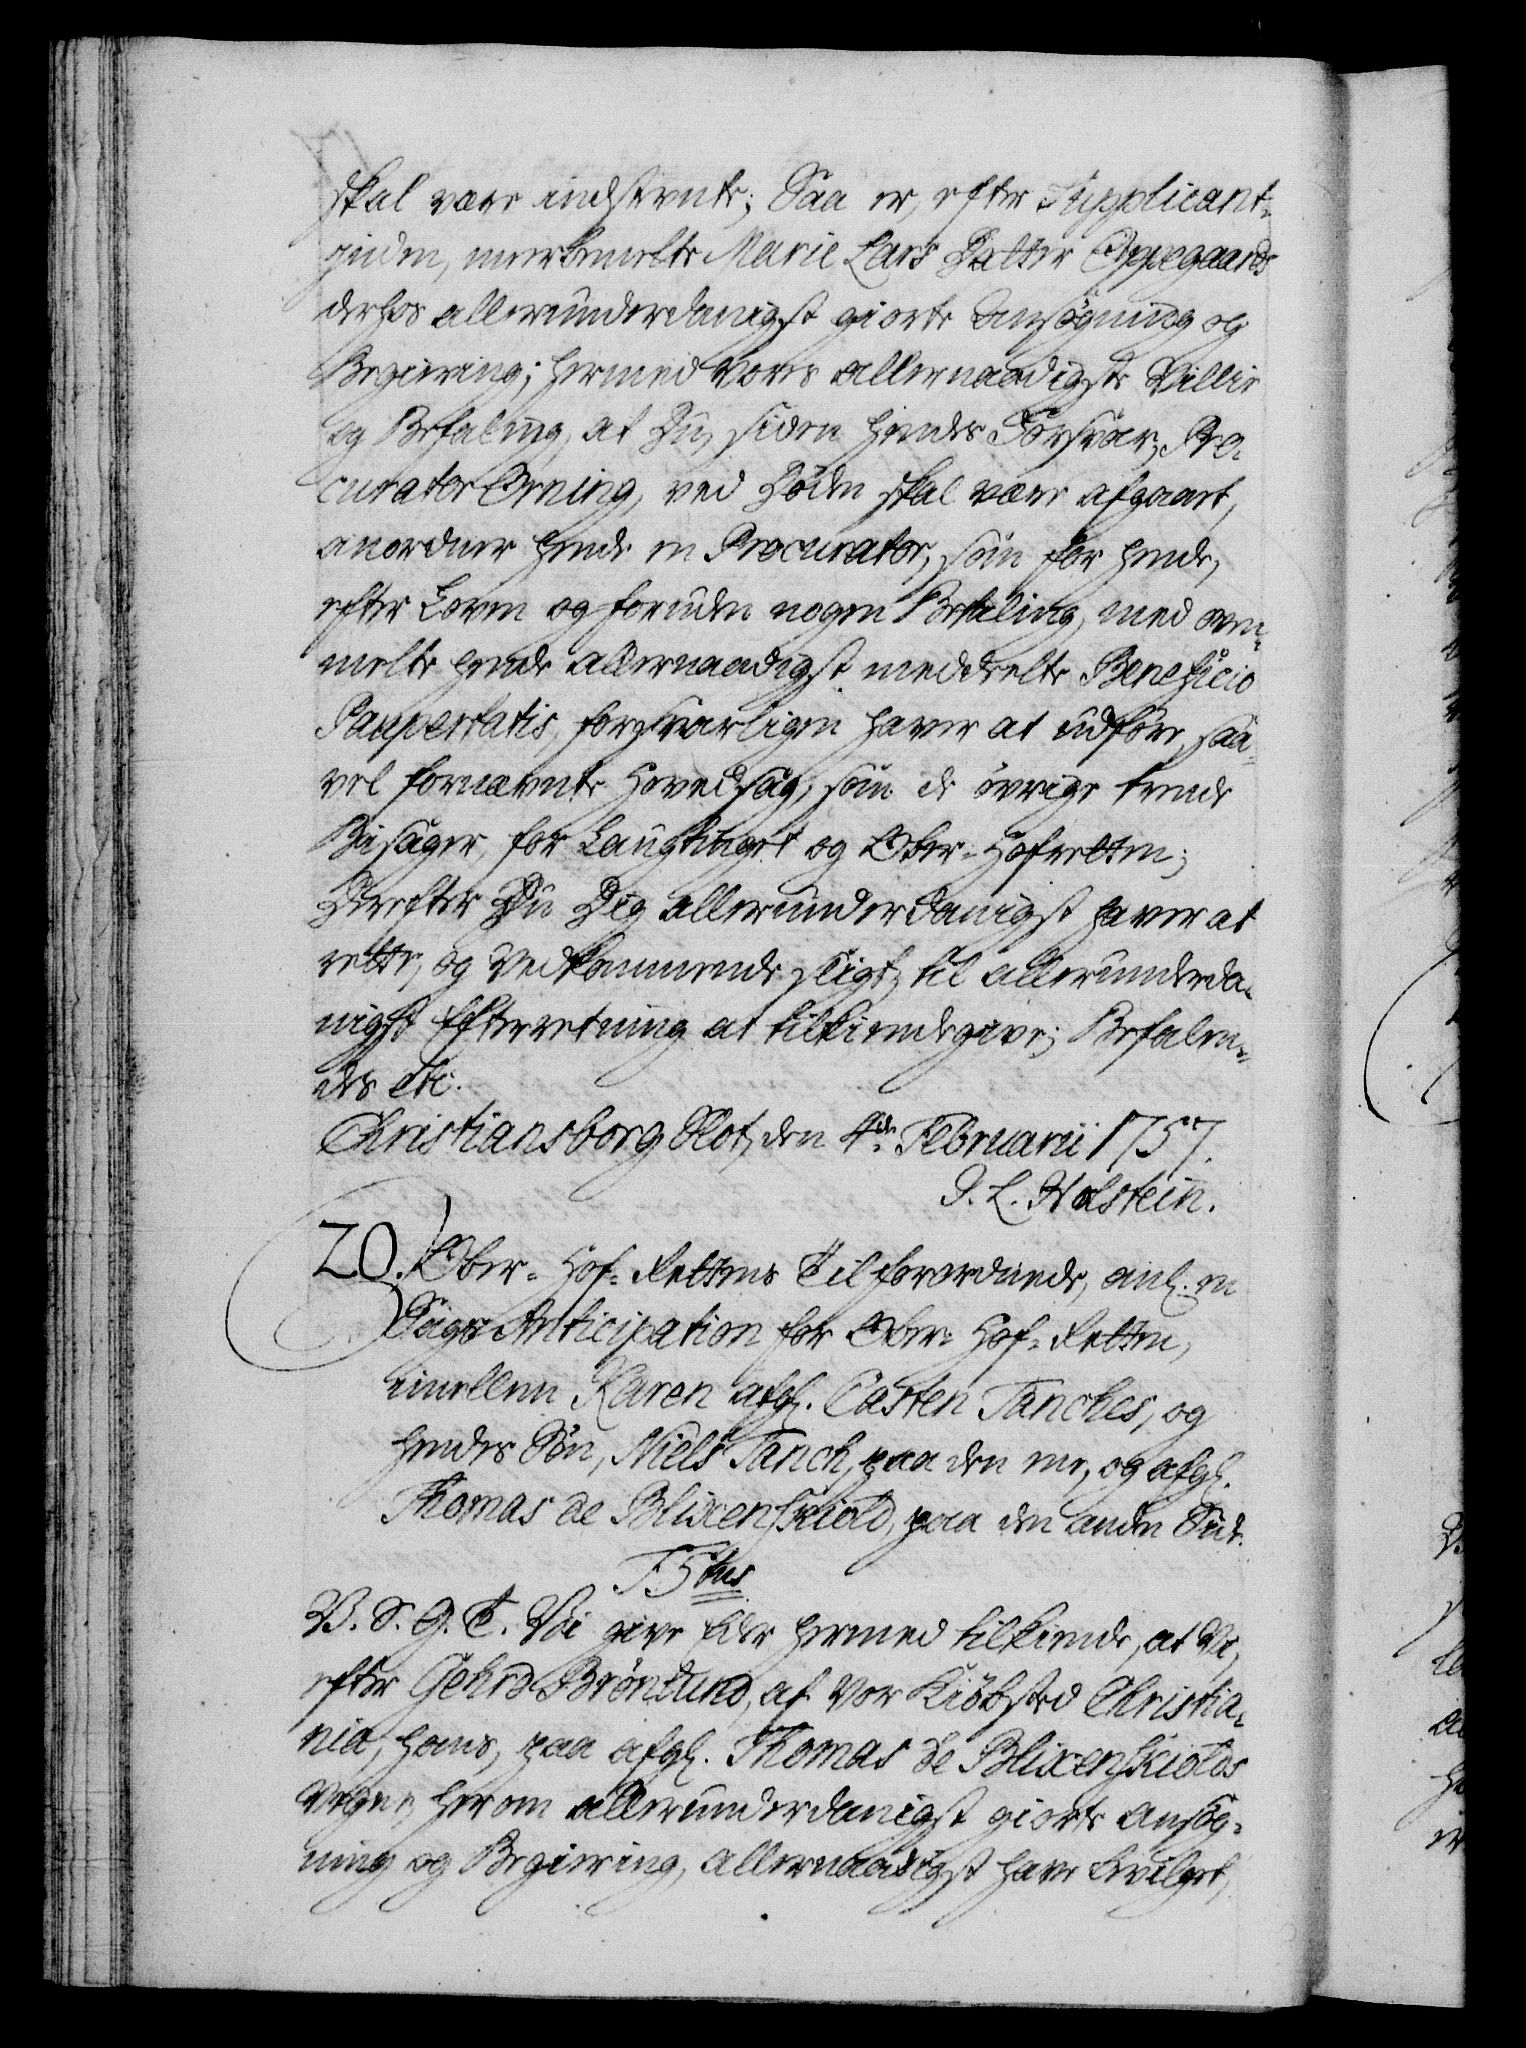 skal være indstevnte; Saa er, efter Supplicant-
inden, meerbemelte Marie Lars Datter Oppegaards
derhos allerunderdanigst giorte Ansøgning og
Begiering; hermed Vores allernaadigste Villie
og Befaling, at Du, siden hendes Forsvar, Pro-
curator Orning, ved Døden skal være afgaaet,
anordner hende en Procurator, som for hende,
efter Loven og foruden nogen Betaling, med oven-
melte hende allernaadigst meddeelte Beneficio
Paupertatis, forsvarligen haver at udføre, saa-
vel fornævnte Hovedsag, som de øvrige trende
Bisager, for Laugtinget og Ober-Hofretten;
Derefter Du Dig allerunderdanigst haver at
rette, og Vedkommende sligt, til allerunderda-
nigst Efterretning at tilkiendegive; Befalen-
des etc.
Christiansborg Slot, den 4de Februarii 1757.
J. L. Holstein.
20. Ober-Hof-Rettens Tilforordnede, anl. en
Sags Anticipation for Ober-Hof-Retten,
imellem Karen afgl. Casten Tanches, og
hendes Søn, Niels Tanch, paa den ene, og afgl.
Thomas de Blixenskiold, paa den anden Side.
F 5tus
V. S. G. T. Vi give Eder hermed tilkiende, at Vi,
efter Gehrd Brønlund, af Vor Kiøbsted Christia-
nia, hans, paa afgl. Thomas de Blixenskiolds
Vegne, herom allerunderdanigst giorte Ansøg-
ning og Begiering, allernaadigst have bevilget,